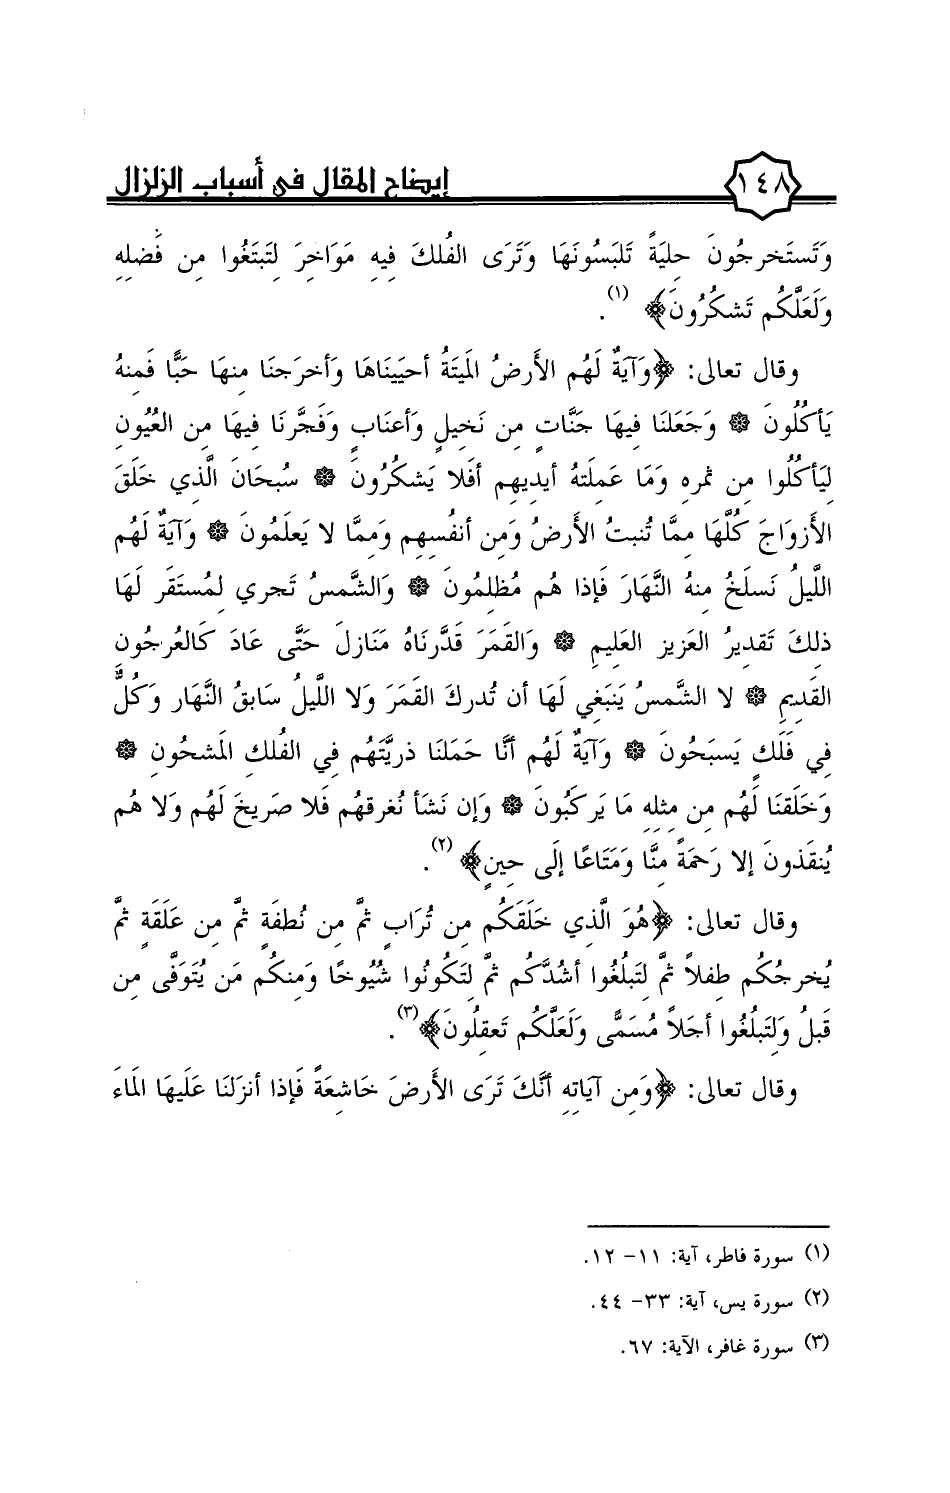 ١٤٨ إيضاح المقال في أسباب الزلزال
وَتَستَخرِجُونَ حِليَةً تَلبَسُونَهَا وَتَرَى الفُلكَ فِيهِ مَوَاخِرَ لِتَبتَغُوا مِن فَضلِهِ
وَلَعَلَّكُم تَشكُرُونَ﴾ (١).
وقال تعالى: ﴿وَآيَةٌ لَهُم الأَرضُ المَيتَةُ أحيَينَاهَا وَأخرَجنَا مِنهَا حَبًّا فَمِنهُ
يَأكُلُونَ ۞ وَجَعَلنَا فِيهَا جَنَّاتٍ مِن نَخِيلٍ وَأعنَابٍ وَفَجَّرنَا فِيهَا مِن العُيُونِ
لِيَأكُلُوا مِن ثَمرِهِ وَمَا عَمِلَتهُ أيدِيهِم أفَلا يَشكُرُونَ ۞ سُبحَانَ الَّذِي خَلَقَ
الأزوَاجَ كُلَّهَا مِمَّا تُنبِتُ الأَرضُ وَمِن أنفُسِهِم وَمِمَّا لا يَعلَمُونَ ۞ وَآيَةٌ لَهُم
اللَّيلُ نَسلَخُ مِنهُ النَّهَارَ فَإذا هُم مُظلِمُونَ ۞ وَالشَّمسُ تَجرِي لِمُستَقَر لَهَا
ذلِكَ تَقدِيرُ العَزِيزِ العَلِيمِ ۞ وَالقَمَرَ قَدَّرنَاهُ مَنَازِلَ حَتَّى عَادَ كَالعُرجُونِ
القَدِيمِ ۞ لا الشَّمسُ يَنبَغِي لَهَا أن تُدرِكَ القَمَرَ وَلا اللَّيلُ سَابِقُ النَّهَارِ وَكُلٌّ
فِي فَلَكٍ يَسبَحُونَ ۞ وَآيَةٌ لَهُم أنَّا حَمَلنَا ذرِيَّتَهُم فِي الفُلكِ المَشحُونِ ۞
وَخَلَقنَا لَهُم مِن مِثلِهِ مَا يَركَبُونَ ۞ وَإن نَشَأ نُغرِقهُم فَلا صَرِيخَ لَهُم وَلا هُم
يُنقَذونَ إلا رَحمَةً مِنَّا وَمَتَاعًا إلَى حِينٍ﴾ (٢).
وقال تعالى: ﴿هُوَ الَّذِي خَلَقَكُم مِن تُرَابٍ ثمَّ مِن نُطفَةٍ ثمَّ مِن عَلَقَةٍ ثمَّ
يُخرِجُكُم طِفلاً ثمَّ لِتَبلُغُوا أشُدَّكُم ثمَّ لِتَكُونُوا شُيُوخًا وَمِنكُم مَن يُتَوَفَّى مِن
قَبلُ وَلِتَبلُغُوا أجَلاً مُسَمًّى وَلَعَلَّكُم تَعقِلُونَ﴾(٣).
وقال تعالى: ﴿وَمِن آيَاتِهِ أنَّكَ تَرَى الأَرضَ خَاشِعَةً فَإذا أنزَلنَا عَلَيهَا المَاءَ
(١) سورة فاطر، آية: ١١- ١٢.
(٢) سورة يس، آية: ٣٣- ٤٤.
(٣) سورة غافر، الآية: ٦٧.